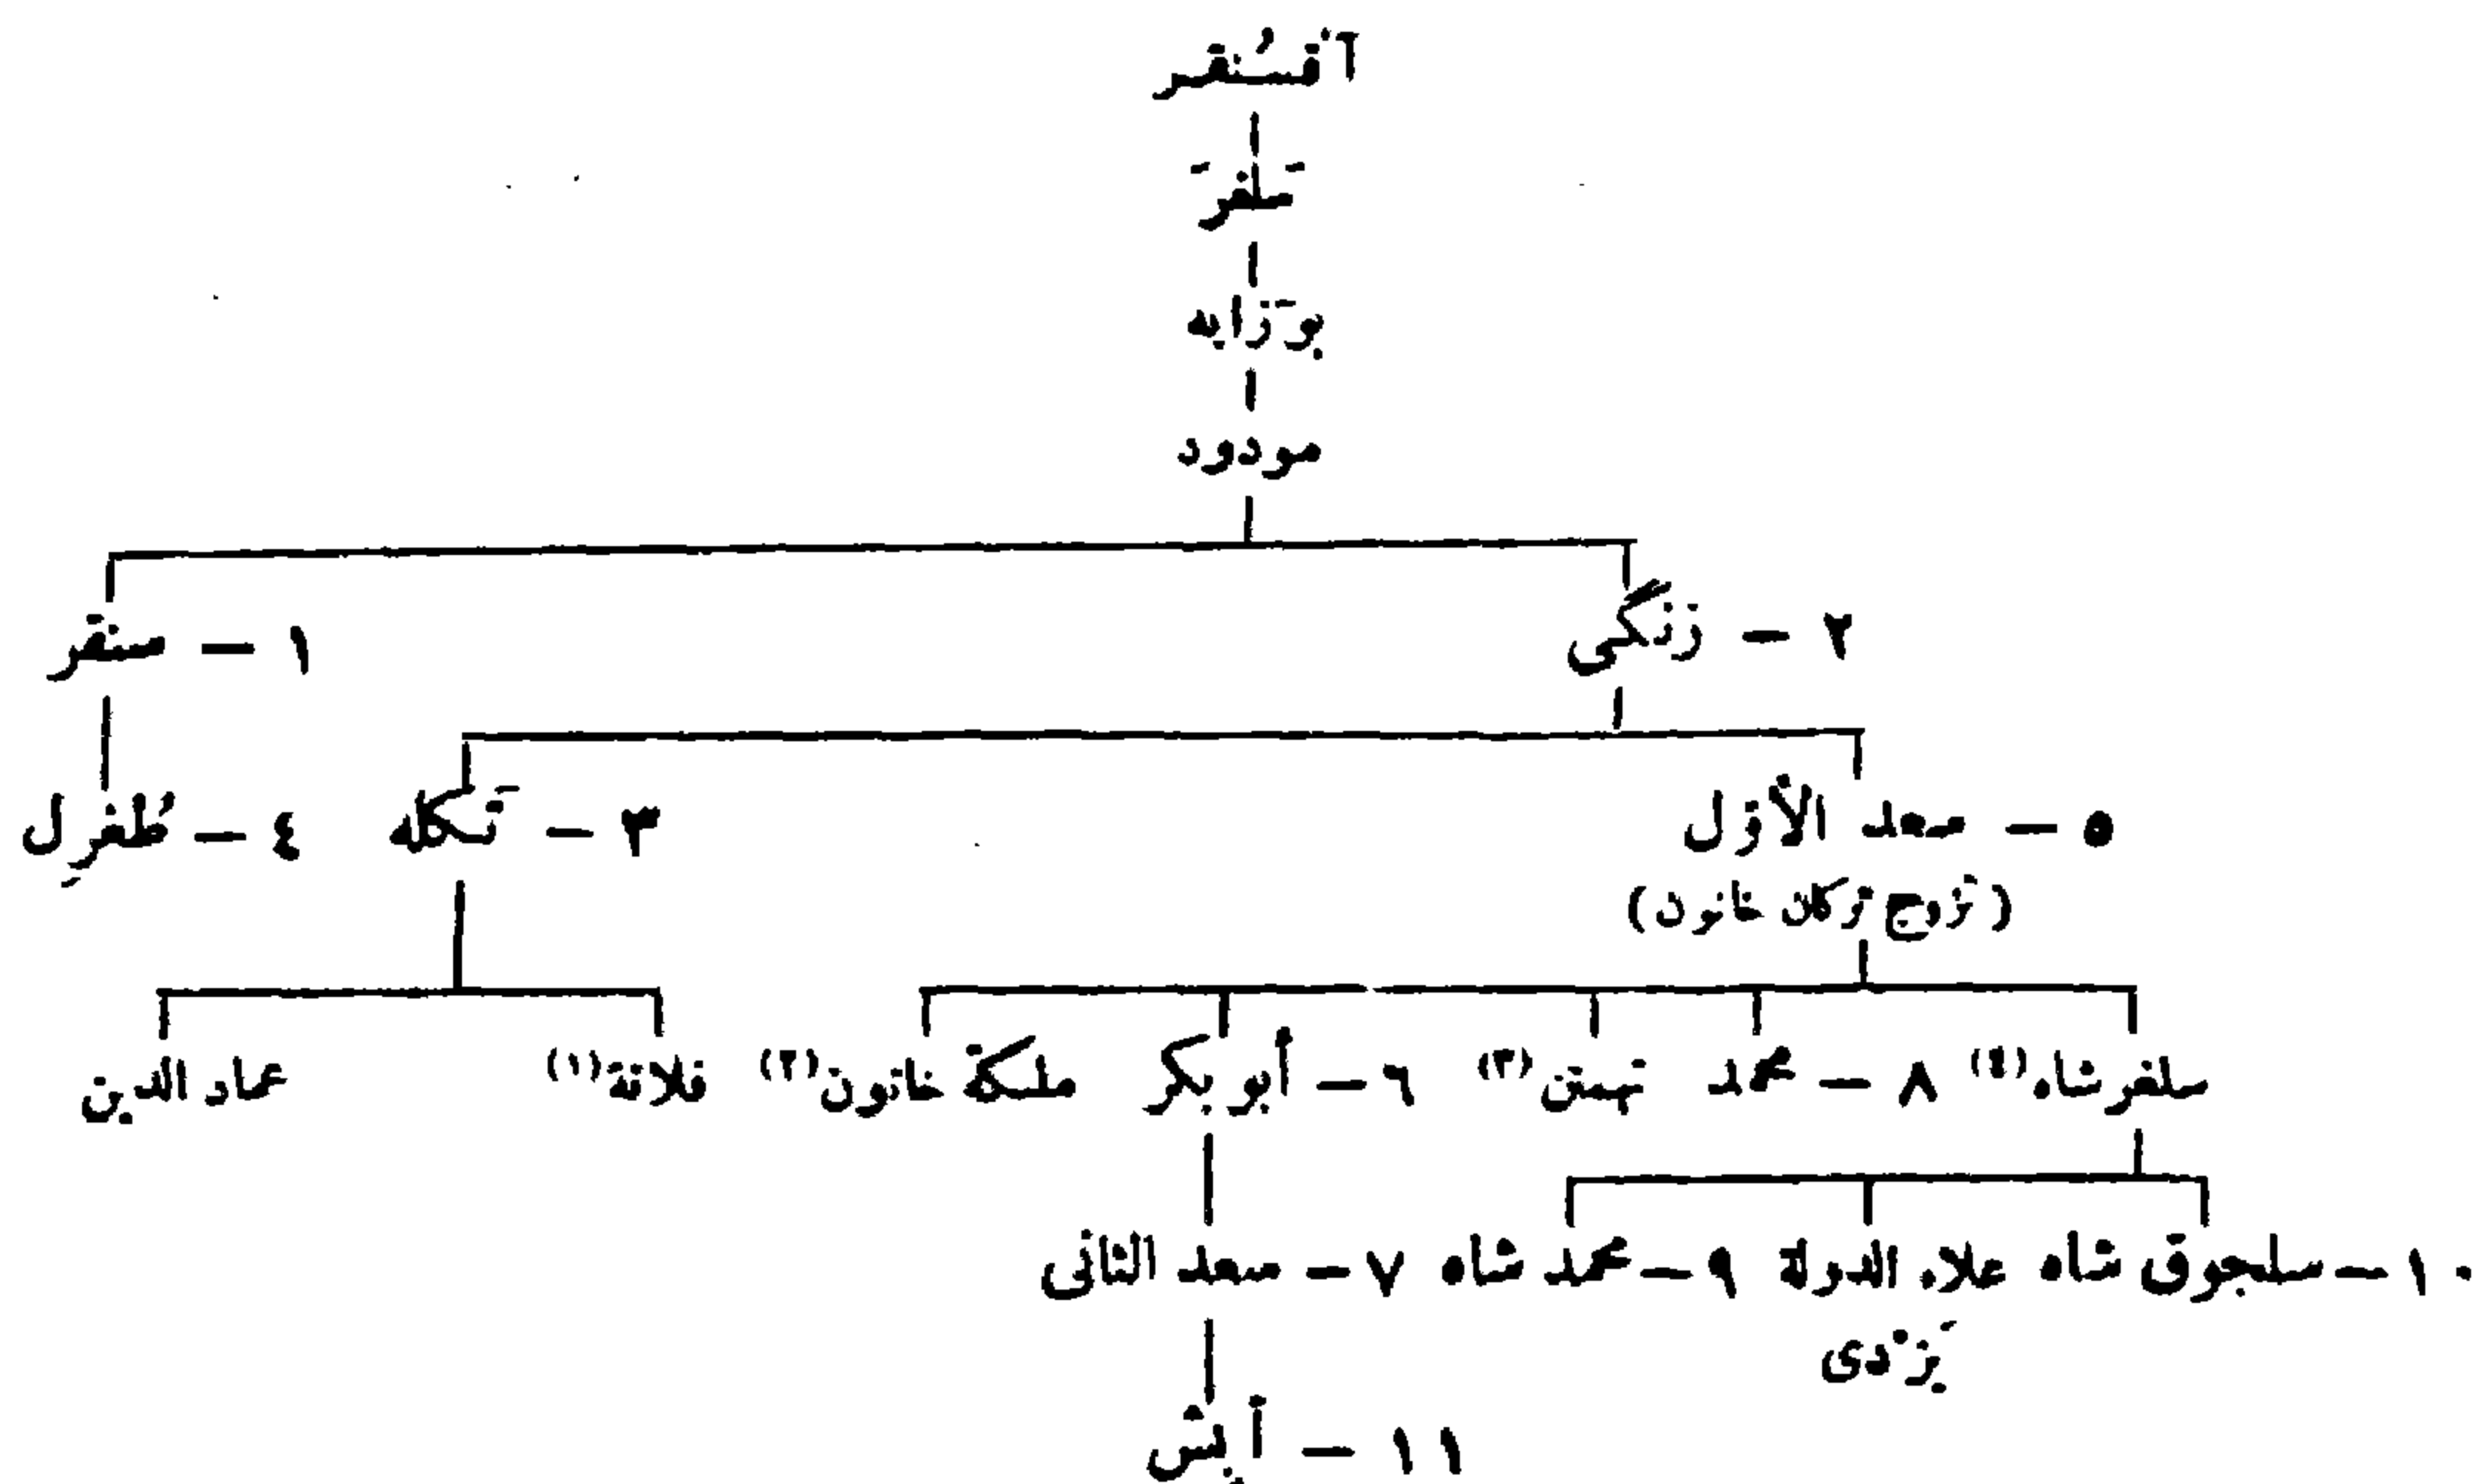 آقسُنقر
سَلغَر
بوَزابه
مودود
٢ – زنگى
١ – سنقر
٥ – سعد الأوّل
٣ – تَكله
٤ – طُغرِل
(زَوج تركان خاتون)
سلغرشاه(٤)
٨ – محمد
تهمتن(٣)
٦ – أبو بكر
ملكة خاتون(٢)
فلانة(١)
عماد الدين
١٠ – سلجوق شاه
علاء الدولة
٩ – محمد شاه
٧ – سعد الثانى
يَزْدى
١١ – أبش